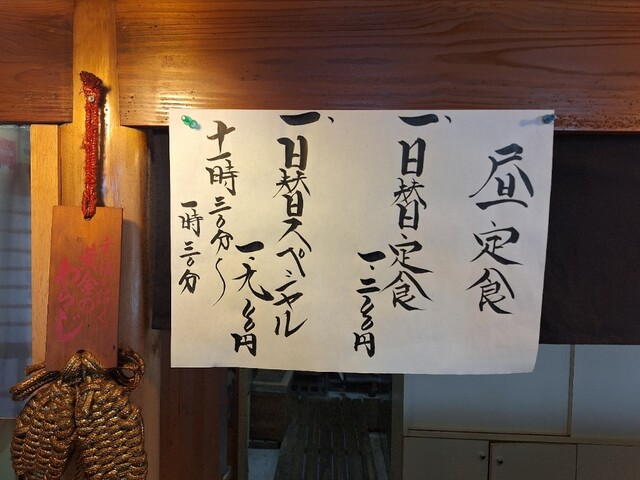 昼定食
一、日替定食
一、二〇〇円
一、日替スペシャル
一、九〇〇円
十一時三〇分〜
一時三〇分
黄金の
わらじ